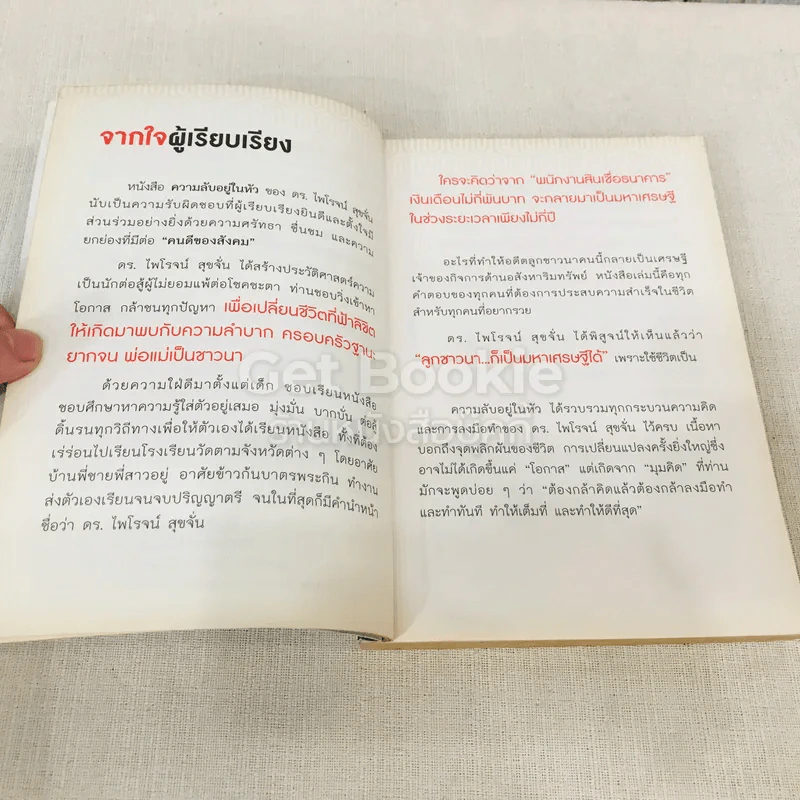 จากใจผู้เรียบเรียง
หนังสือ ความลับอยู่ในหัว ของ ดร. ไพโรจน์ สุขจั่น
นับเป็นความรับผิดชอบที่ผู้เรียบเรียงยินดีและตั้งใจมี
ส่วนร่วมอย่างยิ่งด้วยความศรัทธา ชื่นชม และความ
ยกย่องที่มีต่อ “คนดีของสังคม”
ดร. ไพโรจน์ สุขจั่น ได้สร้างประวัติศาสตร์ความ
เป็นนักต่อสู้ผู้ไม่ยอมแพ้ต่อโชคชะตา ท่านชอบวิ่งเข้าหา
โอกาส กล้าชนทุกปัญหา เพื่อเปลี่ยนชีวิตที่ฟ้าลิขิต
ให้เกิดมาพบกับความลำบาก ครอบครัวฐานะ
ยากจน พ่อแม่เป็นชาวนา
ด้วยความใฝ่ดีมาตั้งแต่เด็ก ชอบเรียนหนังสือ
ชอบศึกษาหาความรู้ใส่ตัวอยู่เสมอ มุ่งมั่น บากบั่น ต่อสู้
ดิ้นรนทุกวิถีทางเพื่อให้ตัวเองได้เรียนหนังสือ ทั้งที่ต้อง
เร่ร่อนไปเรียนโรงเรียนวัดตามจังหวัดต่าง ๆ โดยอาศัย
บ้านพี่ชายพี่สาวอยู่ อาศัยข้าวก้นบาตรพระกิน ทำงาน
ส่งตัวเองเรียนจนจบปริญญาตรี จนในที่สุดก็มีคำนำหน้า
ชื่อว่า ดร. ไพโรจน์ สุขจั่น
ใครจะคิดว่าจาก “พนักงานสินเชื่อธนาคาร”
เงินเดือนไม่กี่พันบาท จะกลายมาเป็นมหาเศรษฐี
ในช่วงระยะเวลาเพียงไม่กี่ปี
อะไรที่ทำให้อดีตลูกชาวนาคนนี้กลายเป็นเศรษฐี
เจ้าของกิจการด้านอสังหาริมทรัพย์ หนังสือเล่มนี้คือทุก
คำตอบของทุกคนที่ต้องการประสบความสำเร็จในชีวิต
สำหรับทุกคนที่อยากรวย
ดร. ไพโรจน์ สุขจั่น ได้พิสูจน์ให้เห็นแล้วว่า
“ลูกชาวนา...ก็เป็นมหาเศรษฐีได้” เพราะใช้ชีวิตเป็น
ความลับอยู่ในหัว ได้รวบรวมทุกกระบวนความคิด
และการลงมือทำของ ดร. ไพโรจน์ สุขจั่น ไว้ครบ เนื้อหา
บอกถึงจุดพลิกผันของชีวิต การเปลี่ยนแปลงครั้งยิ่งใหญ่ซึ่ง
อาจไม่ได้เกิดขึ้นแค่ “โอกาส” แต่เกิดจาก “มุมคิด” ที่ท่าน
มักจะพูดบ่อย ๆ ว่า “ต้องกล้าคิดแล้วต้องกล้าลงมือทำ
และทำทันที ทำให้เต็มที่ และทำให้ดีที่สุด”
Get Bookie